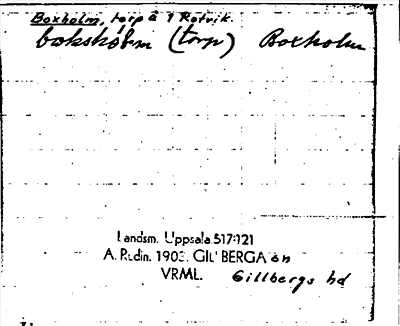 Boxholm, torp å 1 Rotvik.
(torp) Boxholm
Landsm. Uppsala 517:121
A. Rudin. 1903. GILLBERGA sn
VRML. Gillbergs hd